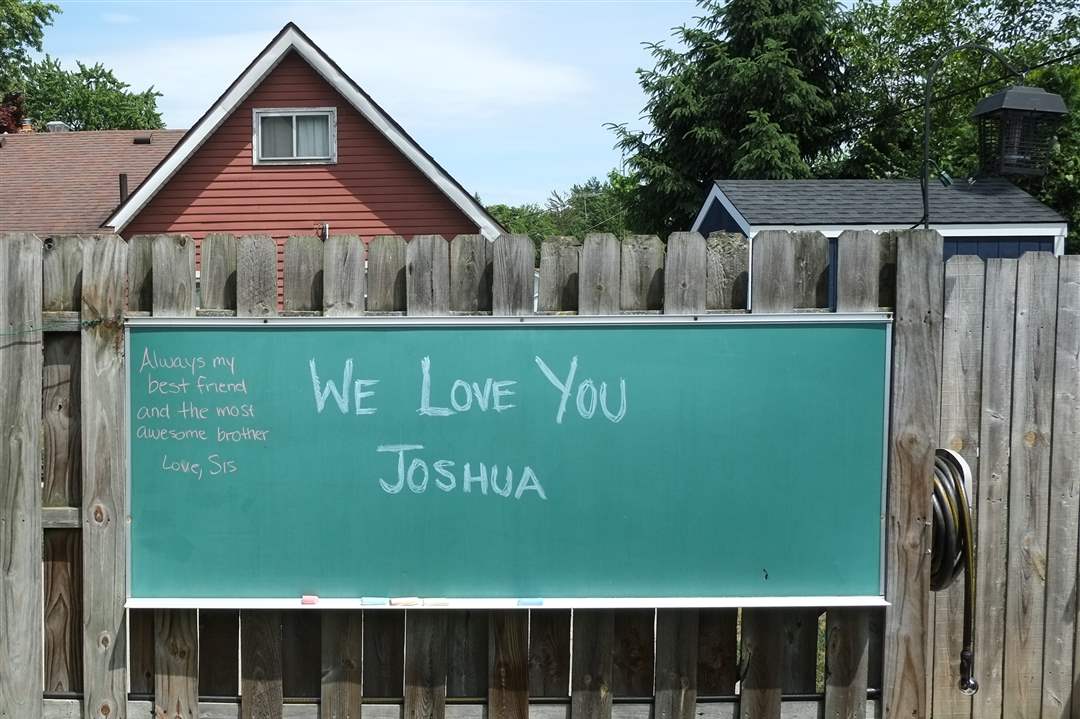 Always my
best friend
and the most
awesome brother
Love, Sis
WE LOVE YOU
JOSHUA